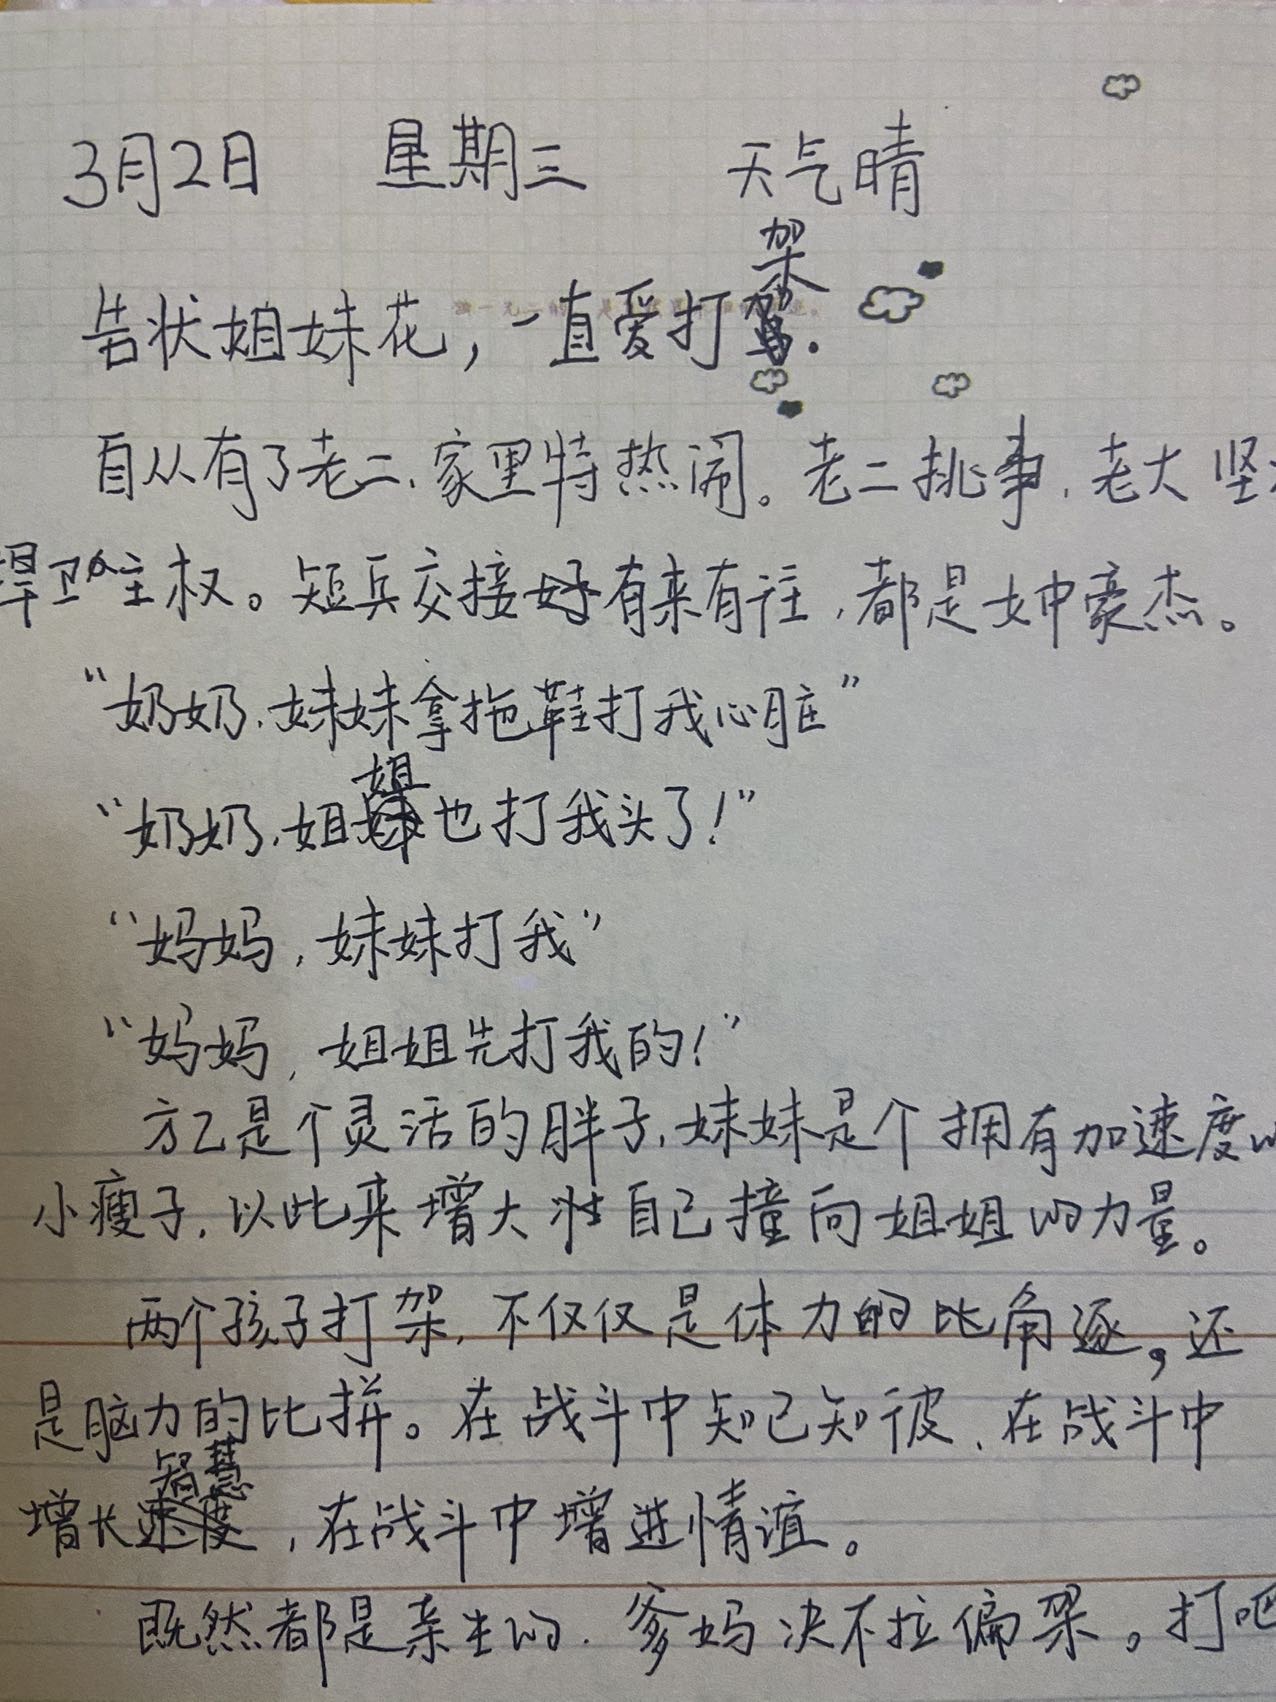 3月2日 星期三 天气晴
告状姐妹花，一直爱打架.
自从有了老二，家里特热闹。老二挑事，老大坚
捍卫主权。短兵交接 有来有往，都是女中豪杰。
“奶奶，妹妹拿拖鞋打我心脏”
“奶奶，姐姐也打我头了！”
“妈妈，妹妹打我”
“妈妈，姐姐先打我的！”
方乙是个灵活的胖子，妹妹是个拥有加速度的
小瘦子，以此来增大 自己撞向姐姐的力量。
两个孩子打架，不仅仅是体力的比角逐，还
是脑力的比拼。在战斗中知己知彼，在战斗中
增长智慧，在战斗中增进情谊。
既然都是亲生的，爹妈决不拉偏架。打吧